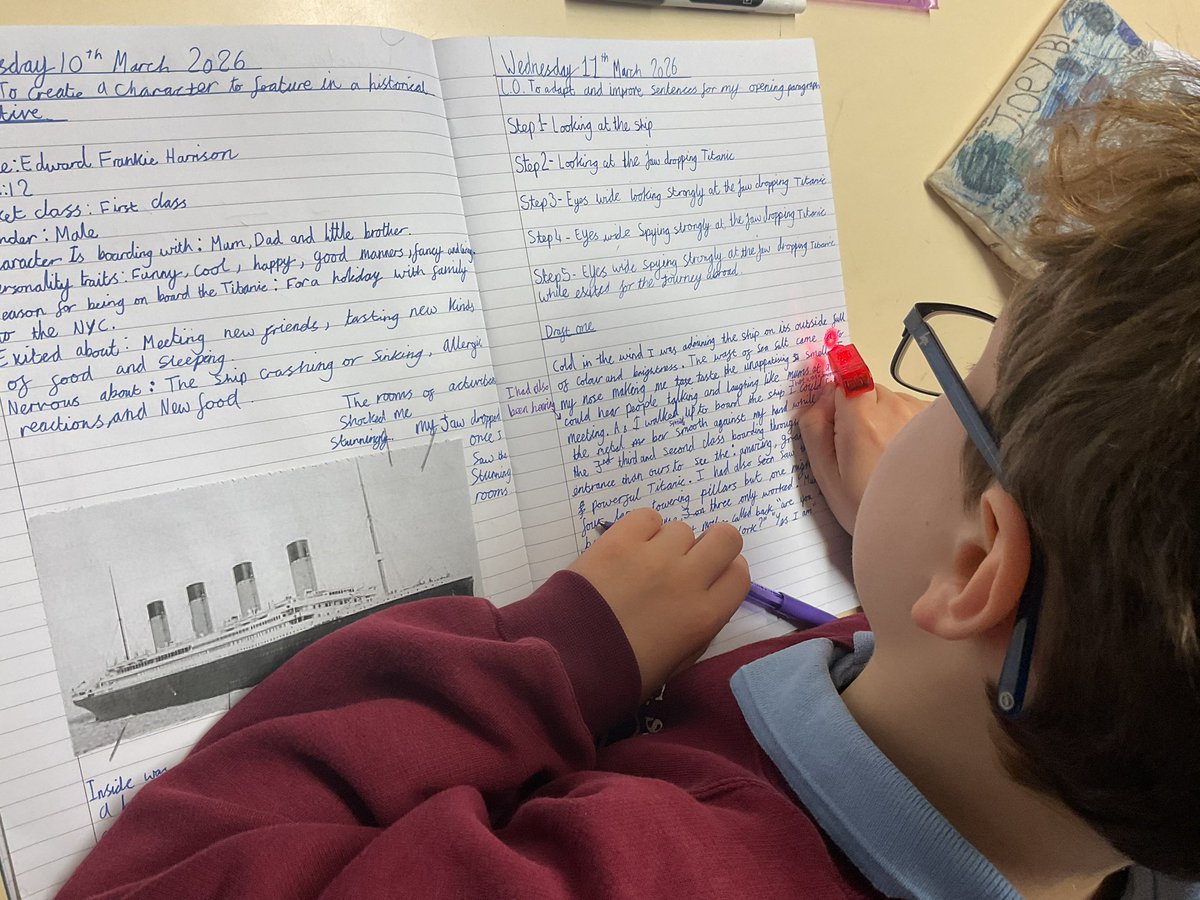 sday 10th March 2026
To create a character to feature in a historical
tive
e: Edward Frankie Harrison
: 12
ket class: First class
nder: Male
aracter Is boarding with: Mum, Dad and little brother.
ersonality traits: Funny, cool, happy, good manners, fancy and
eason for being on board the Titanic: For a holiday with family
to the NYC.
Exited about: Meeting new friends, tasting new kinds
of good and sleeping.
Nervous about: The ship crashing or sinking, allergic
reactions, and New food.
The rooms of activities
shocked me
stunningly. my Jaw dropped
once I
saw the
stunning
rooms
Inside was
a
Wednesday 11th March 2026
L.O. To adapt and improve sentences for my opening paragraph
Step 1- Looking at the ship
Step 2- Looking at the Jaw dropping Titanic
Step 3- Eyes wide looking strongly at the Jaw dropping Titanic
Step 4- Eyes wide Spying strongly at the Jaw dropping Titanic
Step 5- Eyes wide spying strongly at the Jaw dropping Titanic
while exited for the journey abroad.
Draft one
I had also
been hearing
Cold in the wind I was admiring the ship on its outside full
of colour and brightness. The waft of sea salt came
my nose making me taste the unappatising smell
could hear people talking and laughing like mums at
meeting. As I walked up to board the ship I could
the smooth against my hand while
the third and second class boarding through
entrance than ours to see the amazing,
& powerful Titanic. I had also seen
four towering pillars but one
three only worked.
mother called back "are you
York?" "Yes I am"
JOEY B!